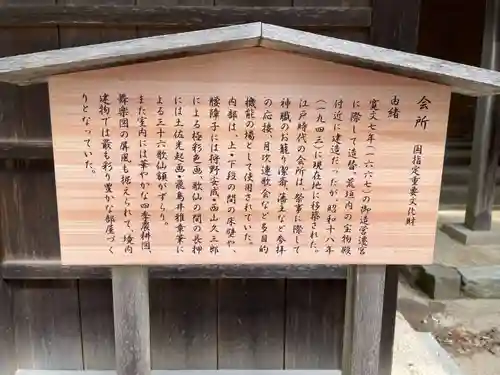 会所
国指定重要文化財
由緒
寛文七年(一六六七)の御造営遷宮
に際して造替。荒垣内の宝物殿
付近に建造だったが、昭和十八年
(一九四三)に現在地に移築された。
江戸時代の会所は、祭事に際して
神職のお籠り潔斎、藩主など参拝
の応接、月次連歌会など多目的
機能の場として使用されていた。
内部は、上・下段の間の床壁や、
腰障子には狩野実成・西山久三郎
による極彩色画、歌仙の間の長押
には土佐光起画・飛鳥井雅章筆に
よる三十六歌仙額がずらり。
また室内には華やかな四季農耕図、
舞楽図の屏風も据えられて、境内
建物では最も彩り豊かな部屋づく
りとなっていた。